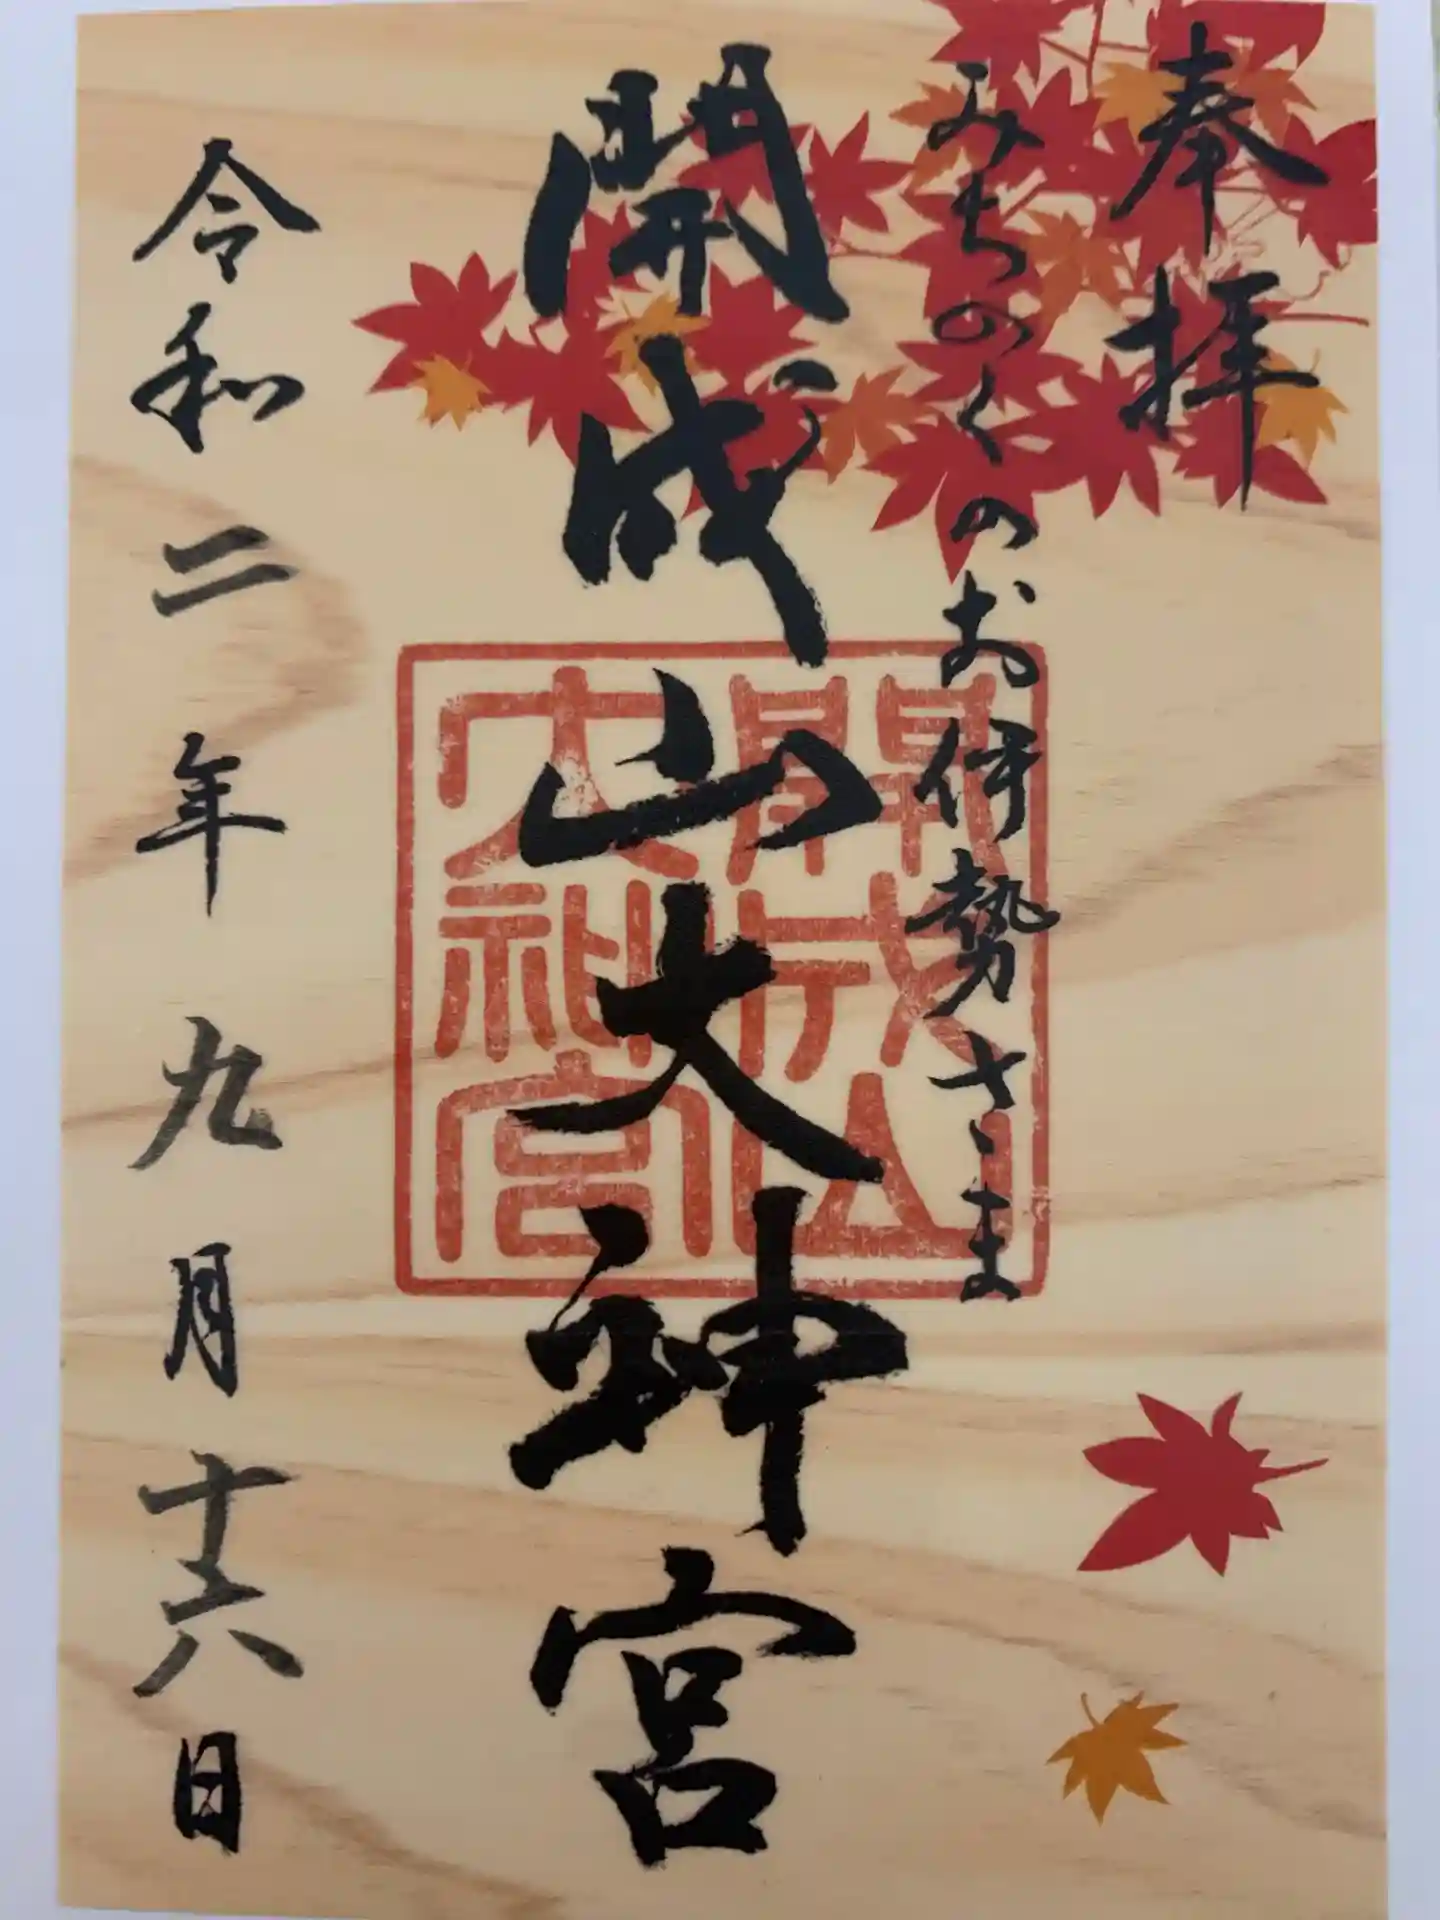 奉拝
みちのくのお伊勢さま
開成山大神宮
開成山
大神宮
令和二年九月十六日